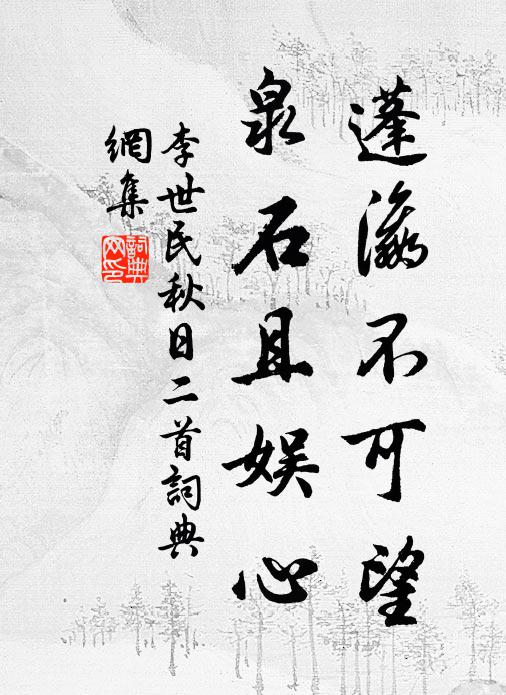 蓬瀛不可望
泉石且娱心
李世民秋日二首詞典
網集
詞典
网印